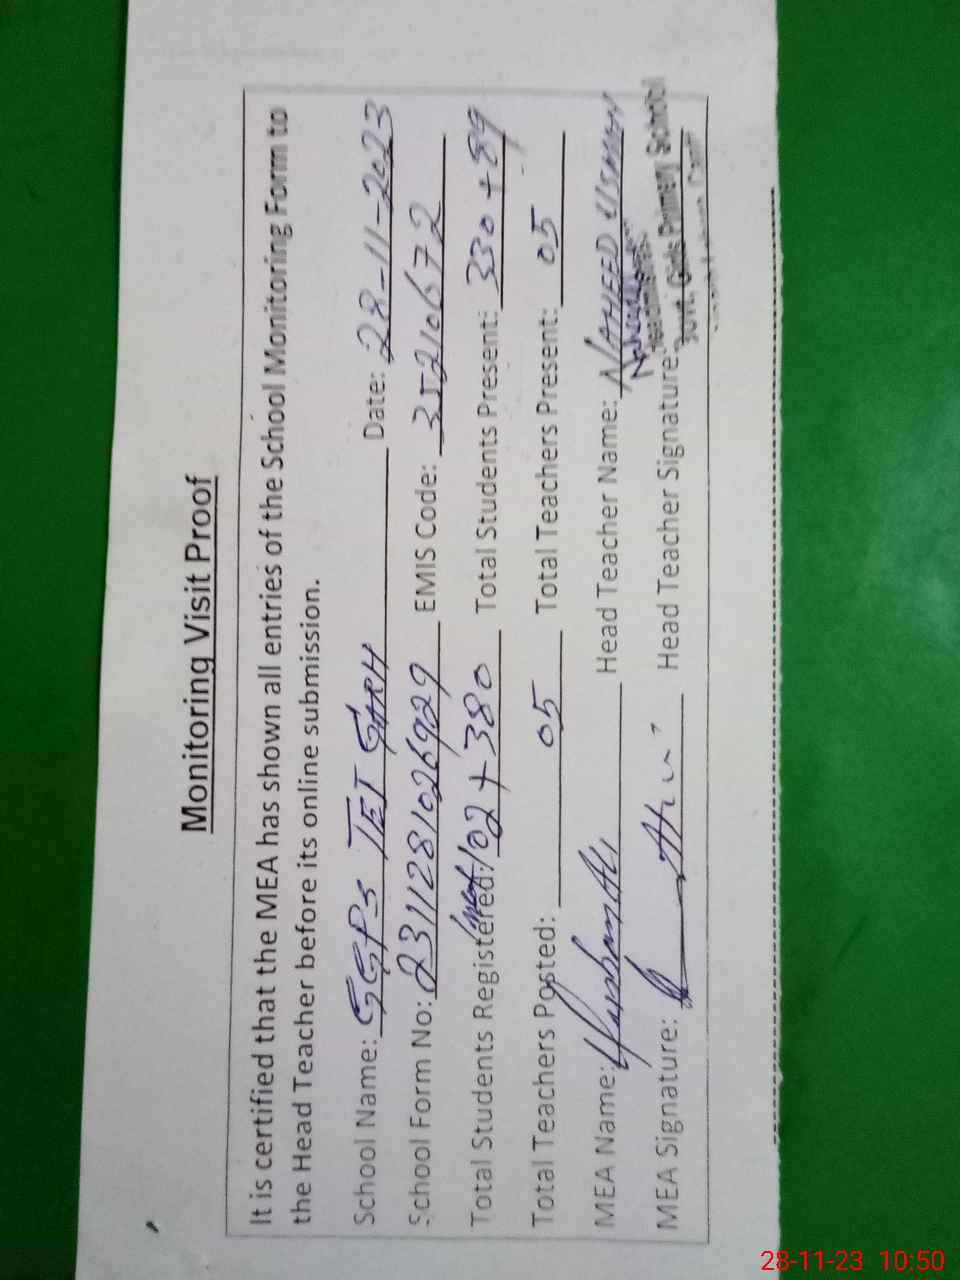 Monitoring Visit Proof
It is certified that the MEA has shown all entries of the School Monitoring Form to
the Head Teacher before its online submission.
School Name: GGPS TET GARH Date: 28-11-2023
School Form No: 2311281026929 EMIS Code: 35210672
Total Students Registered: 102 + 380 Total Students Present: 330 + 89
Total Teachers Posted: 05 Total Teachers Present: 05
MEA Name: Head Teacher Name: NAHEED USMAN
MEA Signature: Head Teacher Signature:
Headmistress
Govt. Girls Primary School
28-11-23 10:50